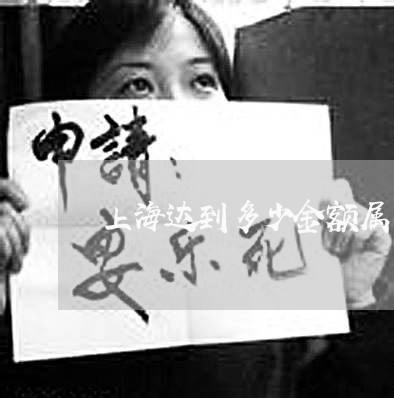 申請：
上海达到多少金额属
安乐死